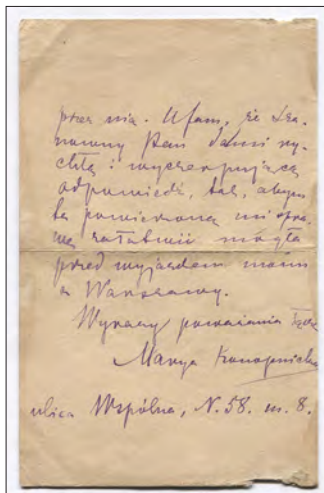 przez nią. Ufam, że Sza-
nowny Pan da mi ry-
chłą i wyczerpującą
odpowiedź, tak, abym
tę powierzoną mi spra-
wę załatwić mogła
przed wyjazdem moim
z Warszawy.
Wyrazy poważania
Marya Konopnicka
ulica Wspólna, N. 58. m. 8.